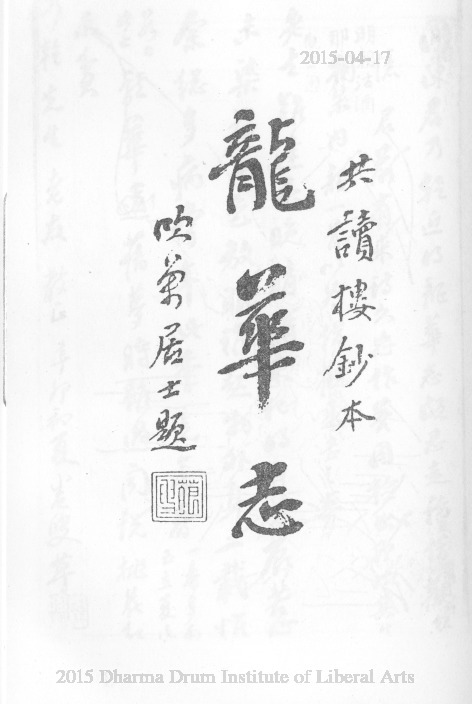 2015-04-17
共讀樓鈔本
龍華志
吹萬居士題
2015 Dharma Drum Institute of Liberal Arts